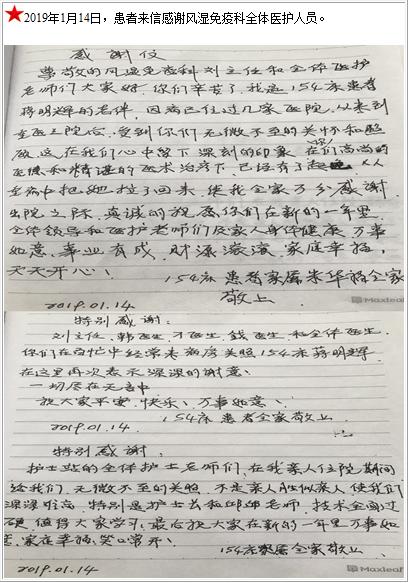 ★2019年1月14日，患者来信感谢风湿免疫科全体医护人员。
感谢仪
尊敬的风湿免疫科刘主任和全体医护
老师们大家好，你们辛苦了，我是154床患者
蒋明辉的老伴，因病已住过几家医院，从来到
医院后，受到你们无微不至的关怀和照
顾，这在我们心中留下深刻的印象，在你们高尚的
医德和精湛的医术治疗下，已经有了起 从
病中把她拉了回来，使我全家万分感谢
出院之际，真诚的祝愿你们在新的一年里
全体领导和医护老师们及家人身体健康，万事
如意，事业有成，财源滚滚，家庭幸福，
天天开心！
154床患者家属朱华 全家
敬上
2019.01.14
Maxleaf
特别感谢：
刘主任，韩医生，才医生，钱医生，和全体医生，
你们在百忙中经常来病房关照154床蒋明辉
在这里再次表示深深的谢意！
一切尽在无言中
祝大家平安，快乐！万事如意！
154床患者全家敬上
2019.01.14.
特别感谢，
护士站的全体护士老师们，在我亲人住院期间
给我们，无微不至的关照，不是亲人胜似亲人，使我们
深深难忘，特别是护士长和邱娜老师，技术全面过
硬，值得大家学习，最后祝大家在新的一年里万事如
意，家庭幸福，笑口常开！
154床家属全家敬上
2019.01.14
Maxleaf